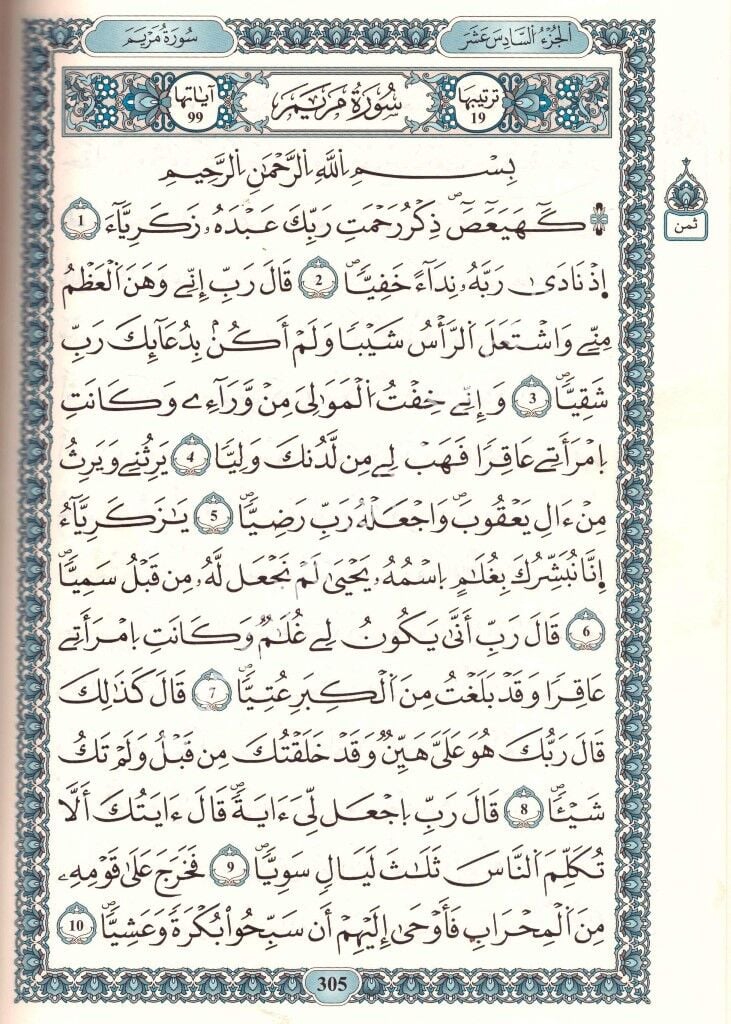 الجزء السادس عشر
سورة مريم
ترتيبها 19
سُورَةُ مَرْيَمَ
آياتها 99
بِسْمِ اِ۬للَّهِ اِ۬لرَّحْمَٰنِ اِ۬لرَّحِيمِ
ثمن
كَٓهَيَعَٓصَٓۖ ذِكْرُ رَحْمَتِ رَبِّكَ عَبْدَهُۥ زَكَرِيَّآءَ 1
اِذْ نَاد۪ىٰ رَبَّهُۥ نِدَآءً خَفِيّاٗۖ 2 قَالَ رَبِّ إِنِّے وَهَنَ اَ۬لْعَظْمُ
مِنِّے وَاشْتَعَلَ اَ۬لرَّأْسُ شَيْباٗ وَلَمْ أَكُنۢ بِدُعَآئِكَ رَبِّ
شَقِيّاٗۖ 3 وَإِنِّے خِفْتُ اُ۬لْمَوَٰلِيَ مِنْ وَّرَآءِے وَكَانَتِ
اِ۪مْرَأَتِے عَاقِراٗ فَهَبْ لِے مِن لَّدُنكَ وَلِيّاٗ 4 يَرِثُنِے وَيَرِثُ
مِنْ ءَالِ يَعْقُوبَۖ وَاجْعَلْهُ رَبِّ رَضِيّاٗۖ 5 يَٰزَكَرِيَّآءُ
اِ۪نَّا نُبَشِّرُكَ بِغُلَٰمٍ اِ۪سْمُهُۥ يَحْيَىٰ لَمْ نَجْعَل لَّهُۥ مِن قَبْلُ سَمِيّاٗۖ
6 قَالَ رَبِّ أَنَّىٰ يَكُونُ لِے غُلَٰمٞ وَكَانَتِ اِ۪مْرَأَتِے
عَاقِراٗ وَقَدْ بَلَغْتُ مِنَ اَ۬لْكِبَرِ عُتِيّاٗۖ 7 قَالَ كَذَٰلِكَ
قَالَ رَبُّكَ هُوَ عَلَيَّ هَيِّنٞ وَقَدْ خَلَقْتُكَ مِن قَبْلُ وَلَمْ تَكُ
شَيْـٔاٗۖ 8 قَالَ رَبِّ اِ۪جْعَل لِّيَ ءَايَةٗۖ قَالَ ءَايَتُكَ أَلَّا
تُكَلِّمَ اَ۬لنَّاسَ ثَلَٰثَ لَيَالٖ سَوِيّاٗۖ 9 فَخَرَجَ عَلَىٰ قَوْمِهِۦ
مِنَ اَ۬لْمِحْرَابِ فَأَوْحَىٰ إِلَيْهِمْ أَن سَبِّحُواْ بُكْرَةٗ وَعَشِيّاٗۖ 10
305